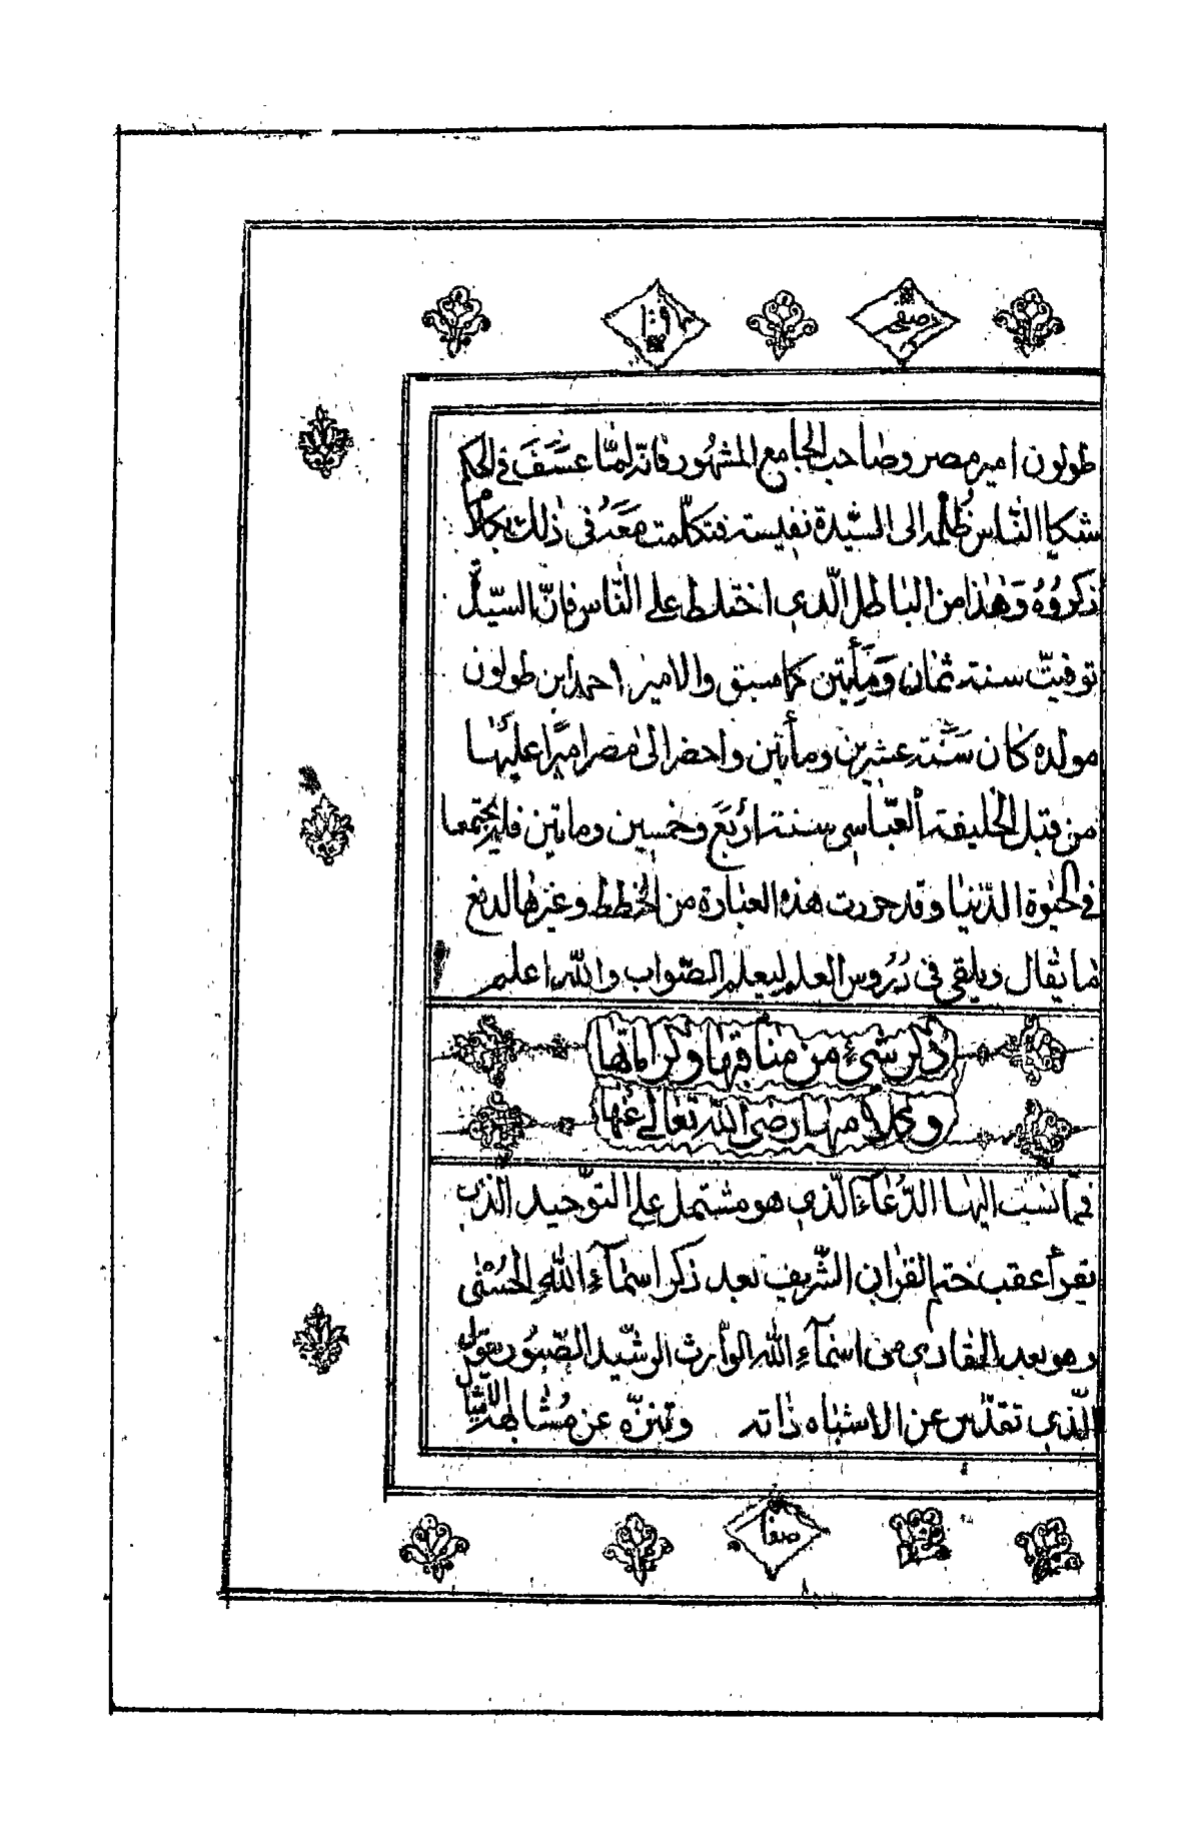 طولون امير مصر وصاحب الجامع المشهور فانه لمّا عسَفَ في الحكم
شكيا النّاس ظُلمه الى السّيّدة نفيسه فتكلّمت مَعَهُ في ذلك بكلام
ذكروُهُ وَهٰذا من الباطل الّذي اختلط على النّاس فانّ السيّدة
توفيتّ سنة ثمان وَمأيتين كما سبق والامير احمد ابن طولون
مولده كان سَنَة عشرين ومأيتين واحضر الى مصر اميرًا عليَها
من قبل الخليفة العبّاسي سنة اربَع وخمسين ومايتين فلم يجتمعا
في الحيٰوة الدّنيا وقد حررت هذه العبارة من الخطط وغيرها لدفع
ما يقال ويلقي في دُرُوس العلم ليعلم الصّواب والله اعلم
ذكر شيء من مناقبها وكراماتها
وكلامها رضي الله تعالى عنها
فمّا نسبت اليها الدّعآء الّذي هو مشتمل على التوّحيد الذي
يقرأ عقب ختم القرٰان الشّريف بعد ذكر اسمآء اللهِ الحُسْنٰى
وهو بعد الهادي من اسمآءِ الله الوارث الرشّيد الصّبُور يقول
الّذي تقدّس عن الاشباه ذاته وتنزّه عن مُشابهة